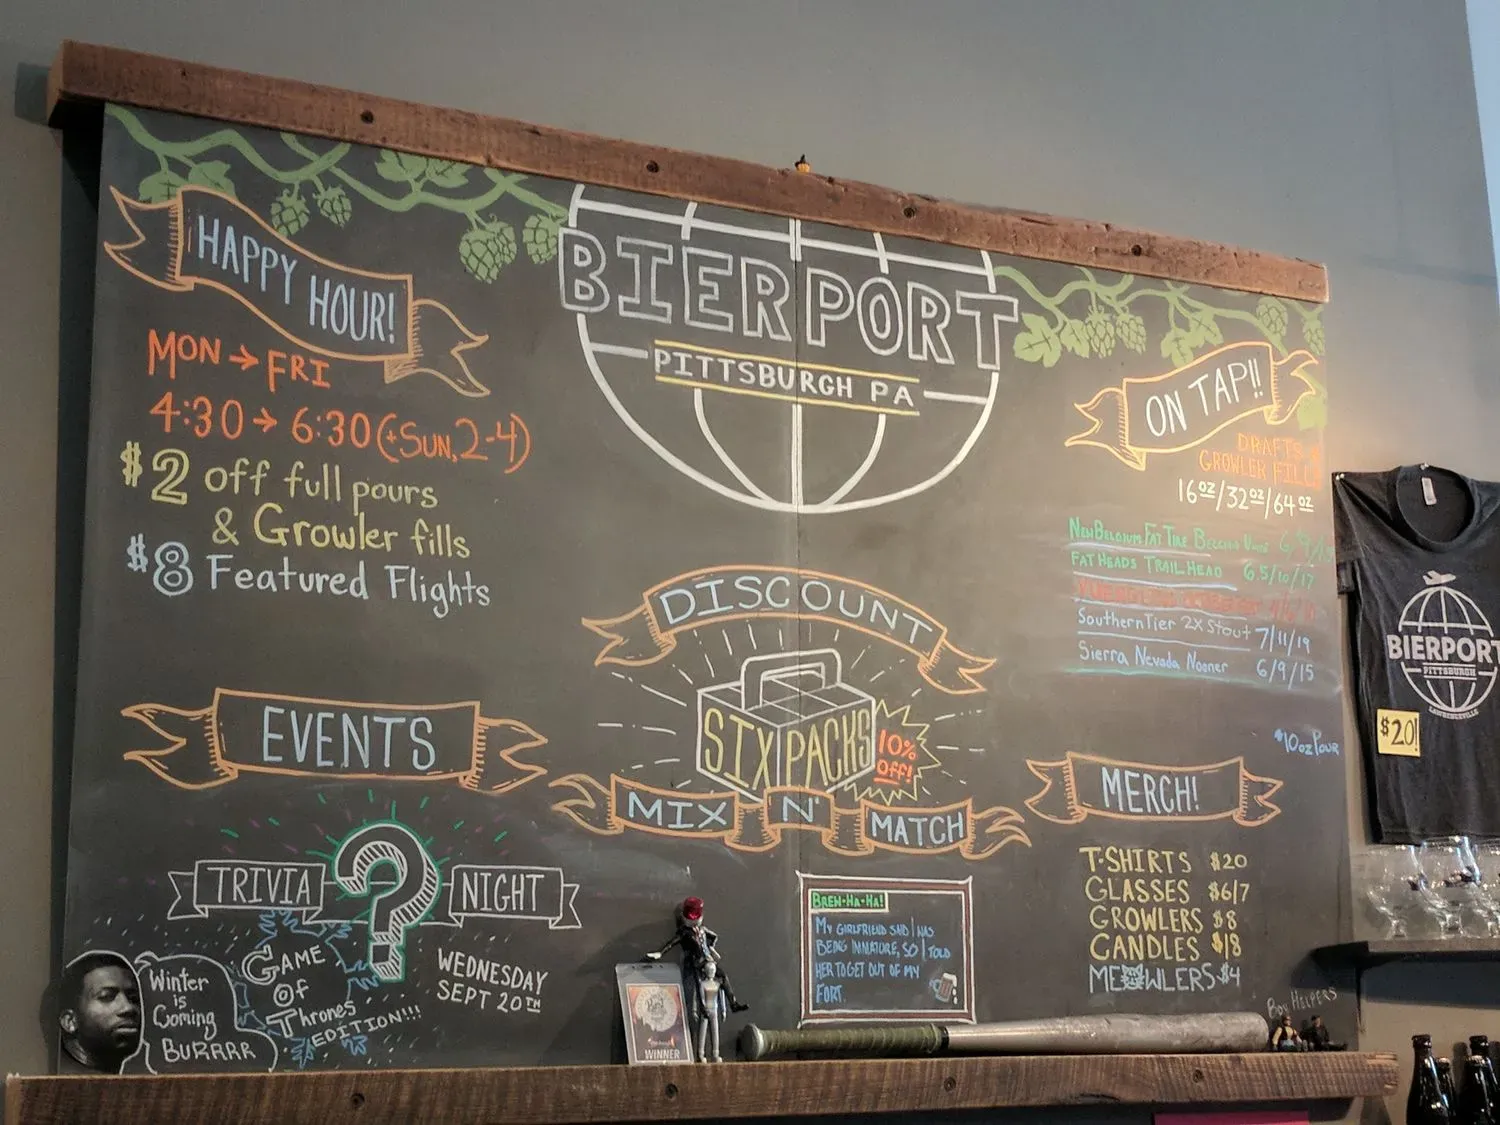 HAPPY HOUR!
MON → FRI
4:30 → 6:30 (+SUN, 2-4)
$2 off full pours
& Growler fills
$8 Featured Flights
BIERPORT
PITTSBURGH PA
ON TAP!!
DRAFTS &
GROWLER FILLS
16oz/32oz/64oz
New Belgium Fat Tire Belgian
FAT HEADS TRAIL HEAD 6.5/10/17
Southern Tier 2x Stout 7/11/19
Sierra Nevada Nooner 6/9/15
$10oz Pour
DISCOUNT
SIX PACKS
10%
OFF!
MIX N' MATCH
EVENTS
TRIVIA ? NIGHT
GAME
OF
Thrones
EDITION!!!
WEDNESDAY
SEPT 20TH
Winter
is
Coming
BURRRR
BREW-HA-HA!
MY GIRLFRIEND SAID I WAS
BEING IMMATURE, SO I TOLD
HER TO GET OUT OF MY
FORT.
WINNER
MERCH!
T-SHIRTS $20
GLASSES $6/7
GROWLERS $8
CANDLES $18
MEOWLERS $4
BOY HELPERS
BIERPORT
PITTSBURGH
LAWRENCEVILLE
$20!